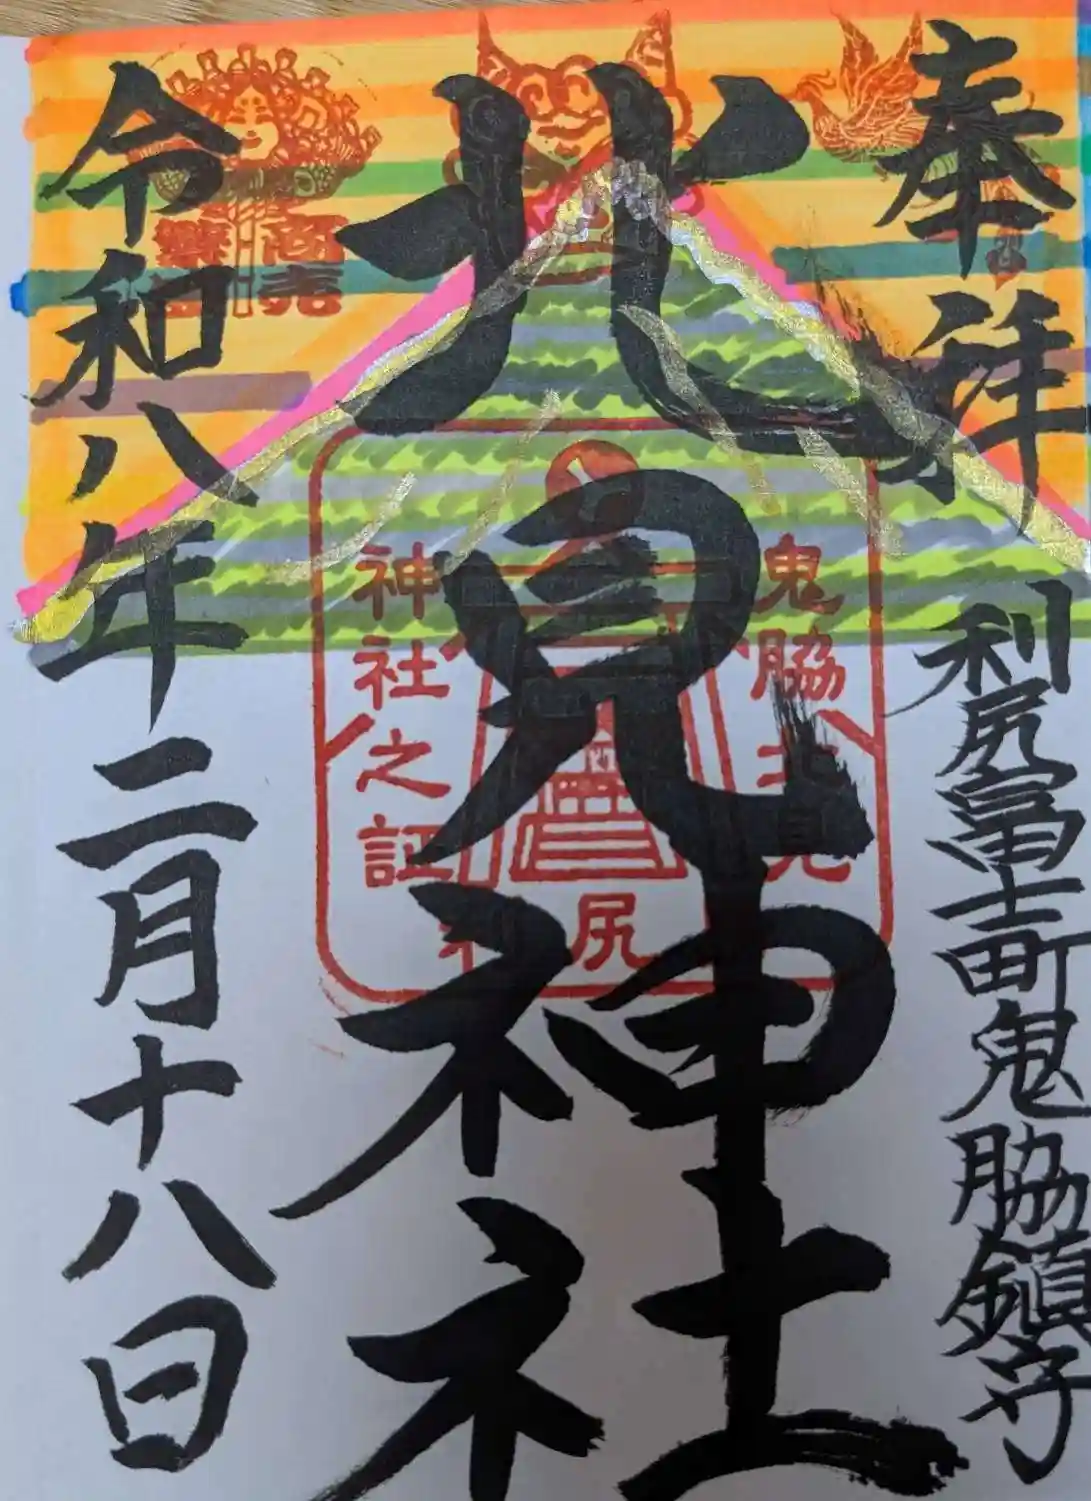 奉拝
利尻富士町鬼脇鎮守
北見神社
鬼脇北見
神社之証
利尻
商売
繁盛
令和八年二月十八日